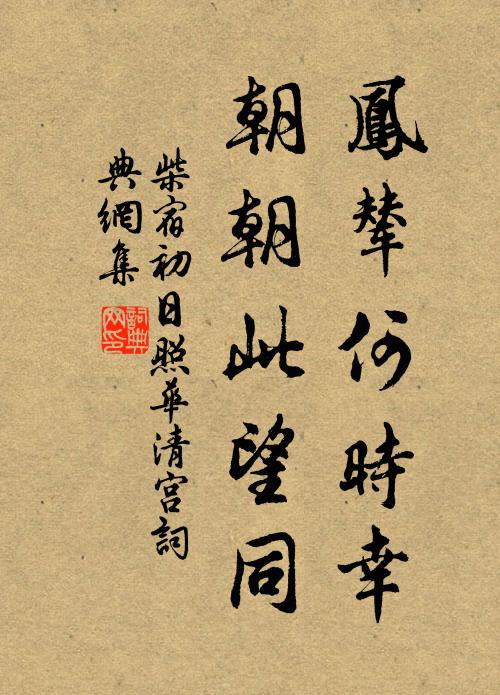 鳳輦何時幸
朝朝此望同
柴宿初日照華清宮詞
典網集
詞典網印